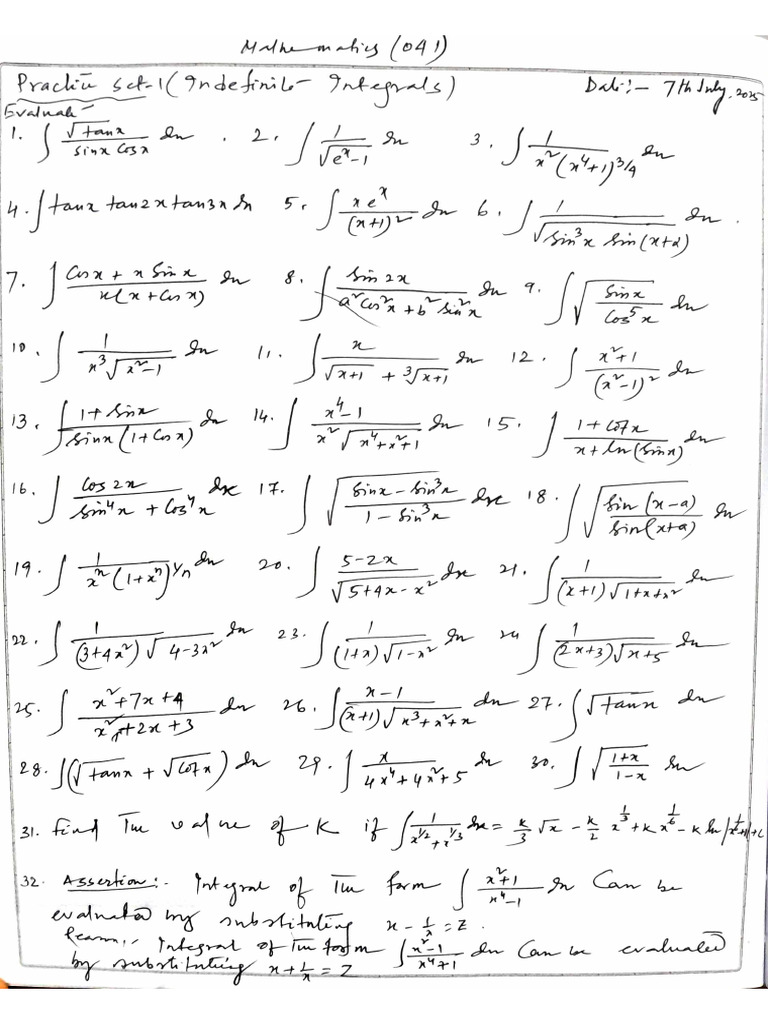 Mathematics (041)
Practice set-1 (Indefinite Integrals) Date:- 7th July, 2025
Evaluate-
1. ∫ √tanx / (sinx cosx) dx . 2. ∫ 1/√(eˣ-1) dx 3. ∫ 1/(x²(x⁴+1)^(3/4)) dx
4. ∫ tanx tan2x tan3x dx 5. ∫ xeˣ/(x+1)² dx 6. ∫ 1/√(sin³x sin(x+α)) dx .
7. ∫ (cosx + x sinx)/(x(x+cosx)) dx 8. ∫ sin2x/(a²cos²x + b²sin²x) dx 9. ∫ √(sinx/cos⁵x) dx
10. ∫ 1/(x³√(x²-1)) dx 11. ∫ x/(√(x+1) + ³√(x+1)) dx 12. ∫ (x²+1)/(x²-1)² dx
13. ∫ (1+sinx)/(sinx(1+cosx)) dx 14. ∫ (x⁴-1)/(x²√(x⁴+x²+1)) dx 15. ∫ (1+cotx)/(x+ln(sinx)) dx
16. ∫ cos2x/(sin⁴x + cos⁴x) dx 17. ∫ √((sinx-sin³x)/(1-sin³x)) dx 18. ∫ √(sin(x-a)/sin(x+a)) dx
19. ∫ 1/(xⁿ(1+xⁿ)^(1/n)) dx 20. ∫ (5-2x)/√(5+4x-x²) dx 21. ∫ 1/((x+1)√(1+x+x²)) dx
22. ∫ 1/((3+4x²)√(4-3x²)) dx 23. ∫ 1/((1+x)√(1-x²)) dx 24 ∫ 1/((2x+3)√(x+5)) dx
25. ∫ (x²+7x+4)/(x²+2x+3) dx 26. ∫ (x-1)/((x+1)√(x³+x²+x)) dx 27. ∫ √tanx dx
28. ∫(√tanx + √cotx) dx 29. ∫ x/(4x⁴+4x²+5) dx 30. ∫ √((1+x)/(1-x)) dx
31. Find the value of K if ∫ 1/(x^(1/2)+x^(1/3)) dx = k/3 √x - k/2 x^(1/3) + k x^(1/6) - k ln|x^(1/6)+1|+c
32. Assertion:- Integral of the form ∫ (x²+1)/(x⁴-1) dx can be
evaluated by substituting x - 1/x = z .
Reason:- Integral of the form ∫ (x²-1)/(x⁴+1) dx can be evaluated
by substituting x + 1/x = z